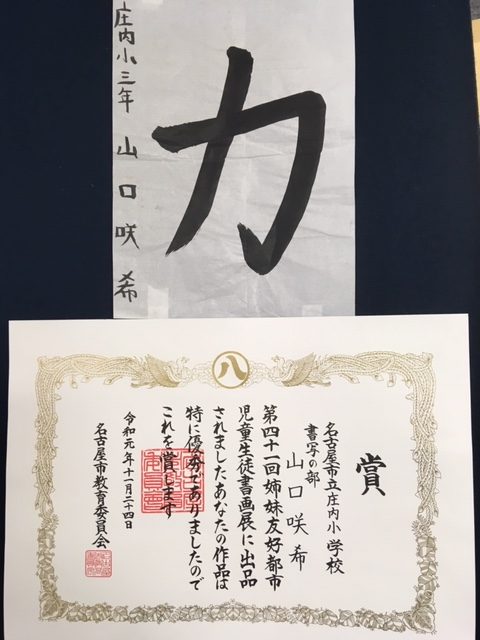 力
庄内小三年 山口咲希
八
賞
名古屋市立庄内小学校
書写の部
山口咲希
第四十一回姉妹友好都市
児童生徒書画展に出品
されましたあなたの作品は
特に優秀でありましたので
これを賞します
令和元年十一月二十四日
名古屋市教育委員会